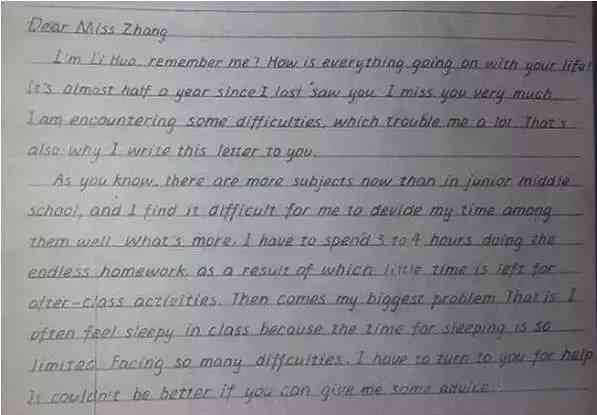 Dear Miss Zhang
I'm Li Hua, remember me? How is everything going on with your life?
It's almost half a year since I last saw you. I miss you very much.
I am encountering some difficulties, which trouble me a lot. That's
also why I write this letter to you.
As you know, there are more subjects now than in junior middle
school, and I find it difficult for me to devide my time among
them well. What's more, I have to spend 3 to 4 hours doing the
endless homework, as a result of which little time is left for
after-class activities. Then comes my biggest problem. That is I
often feel sleepy in class because the time for sleeping is so
limited. Facing so many diffculties, I have to turn to you for help.
It couldn't be better if you can give me some advice.